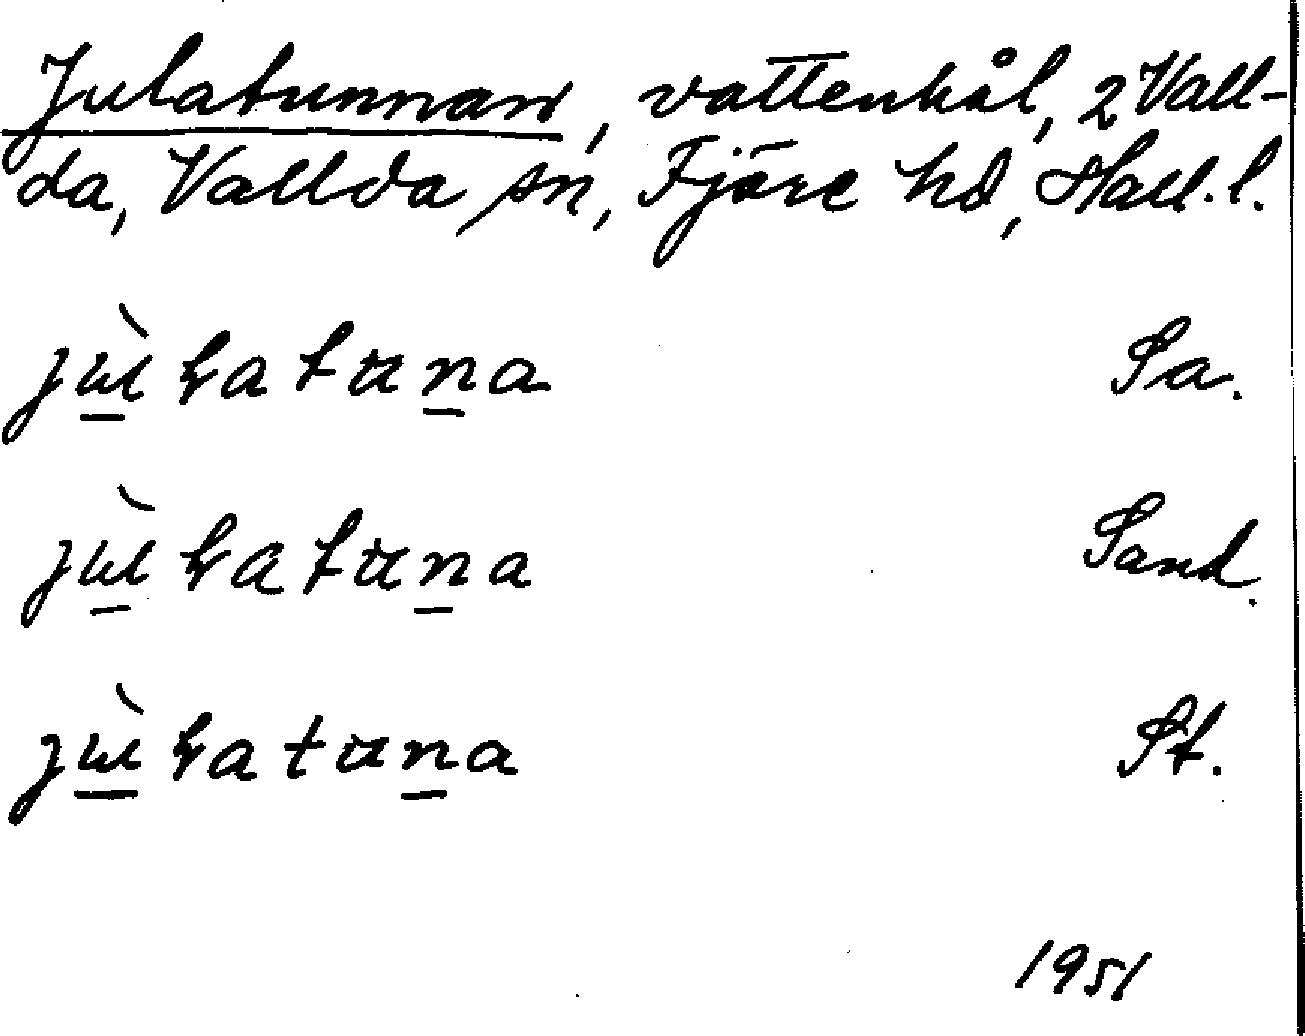 Julatunnan, vattenhål, 2 Vall-
da, Vallda sn, Fjäre hd, Hall. l.
jɯ̱̀ɽatᵾṉa Sa.
jɯ̱̀ɽatᵾṉa Sand.
jɯ̱̀ɽatᵾṉa St.
1951